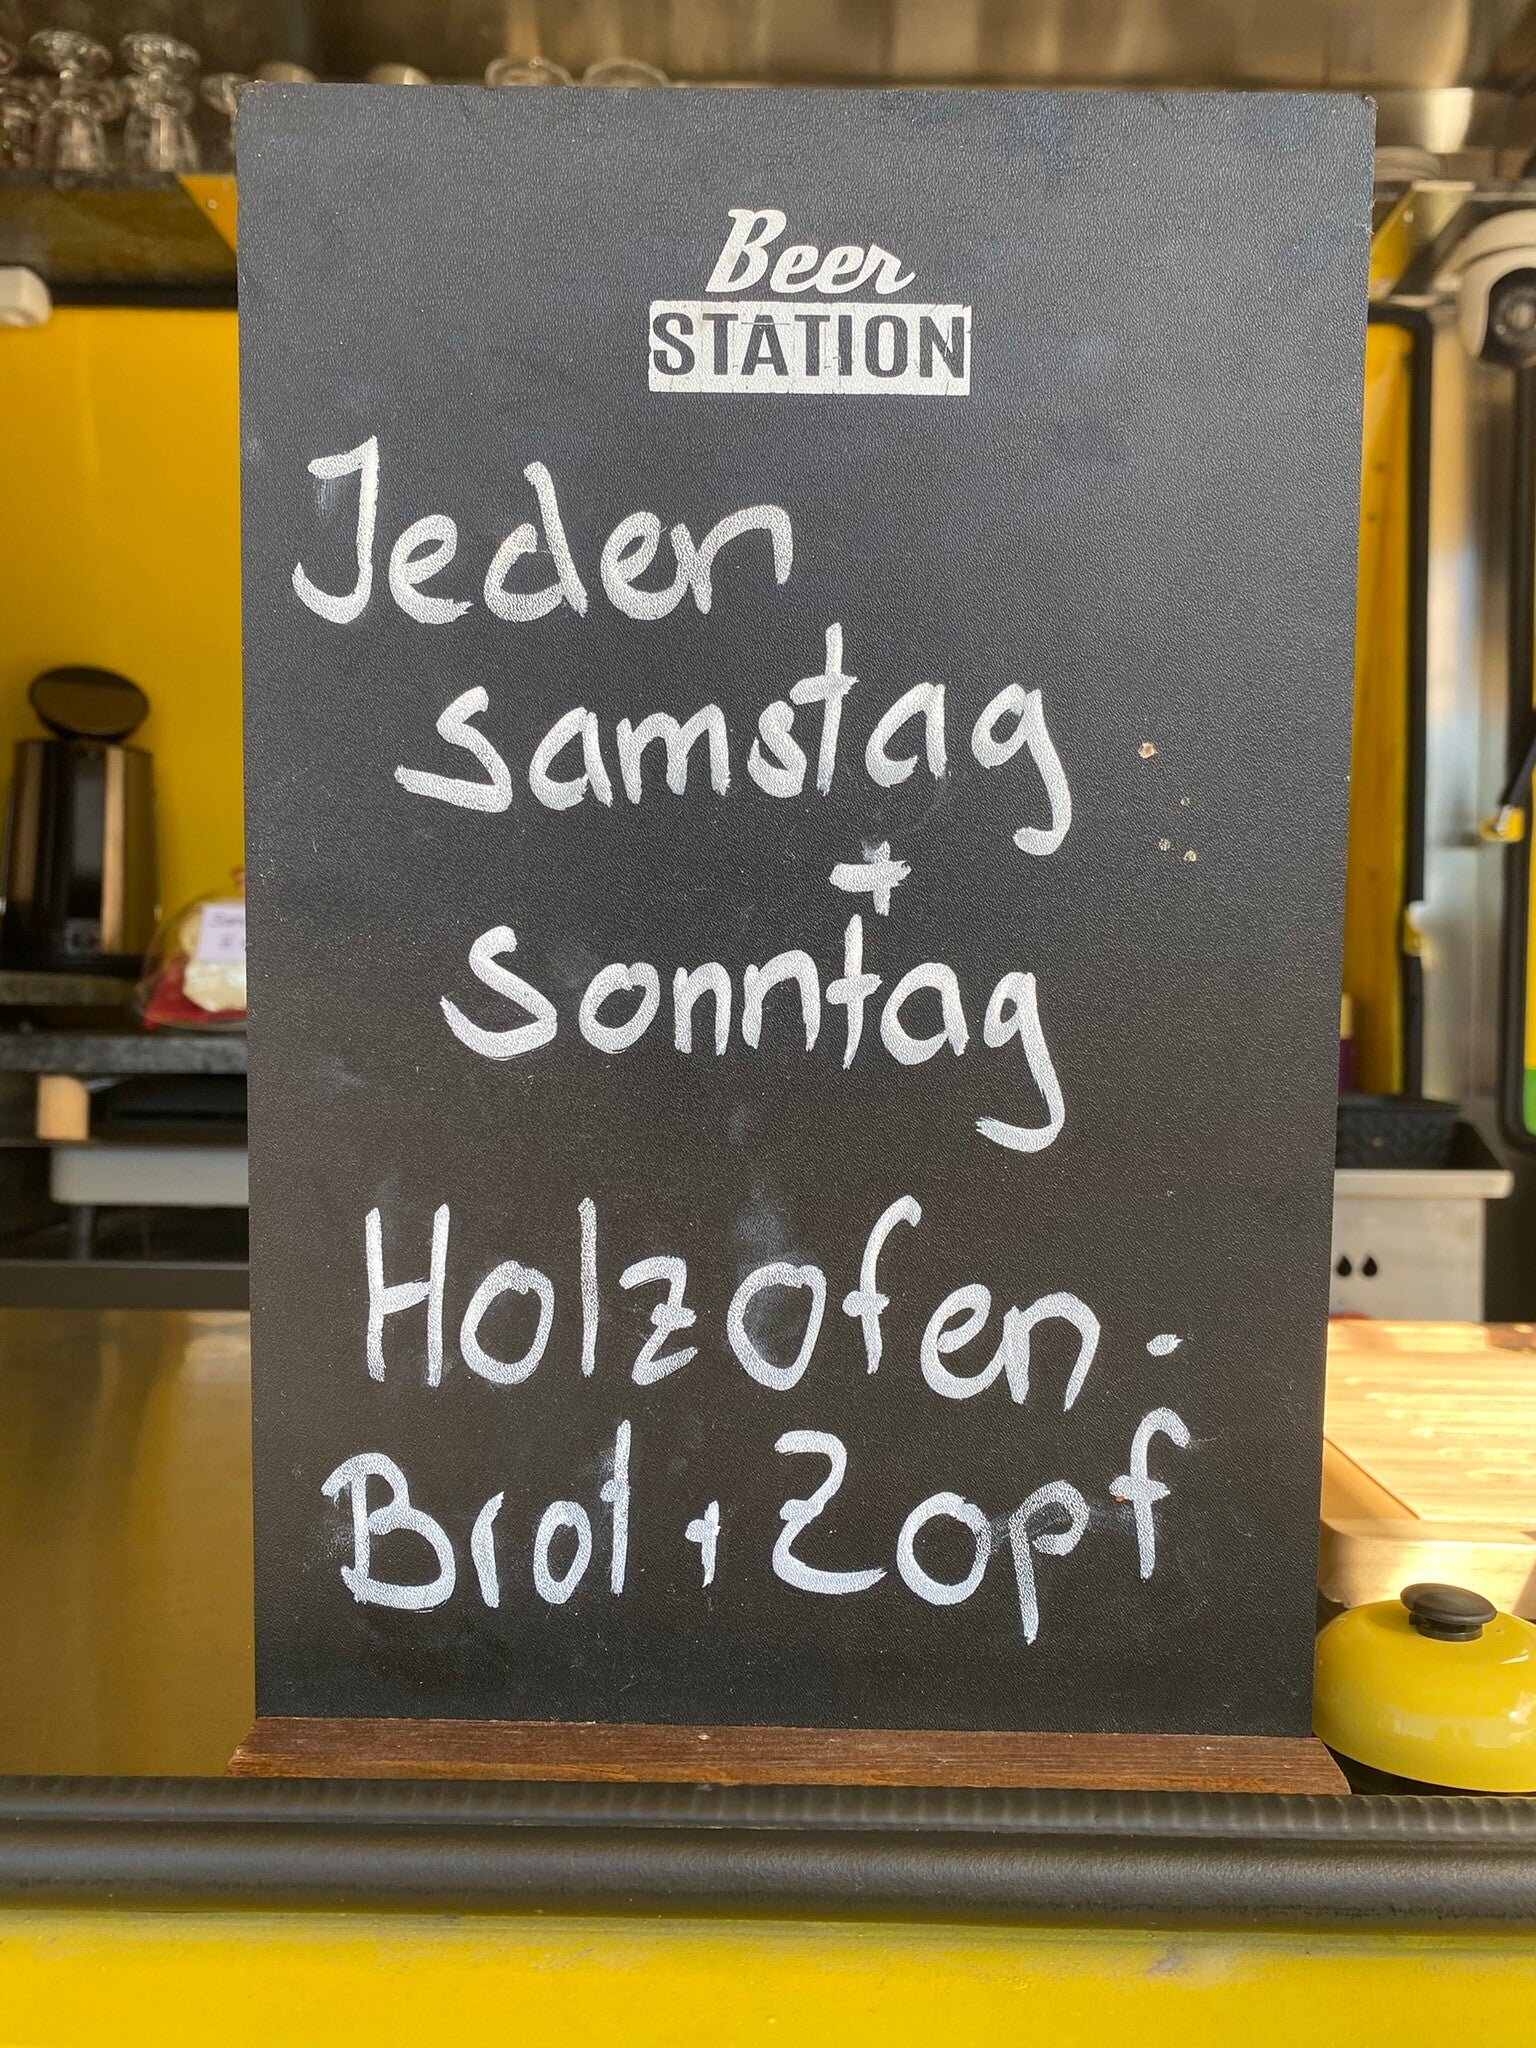 Beer
STATION
Jeden
Samstag
+
Sonntag
Holzofen-
Brot + Zopf